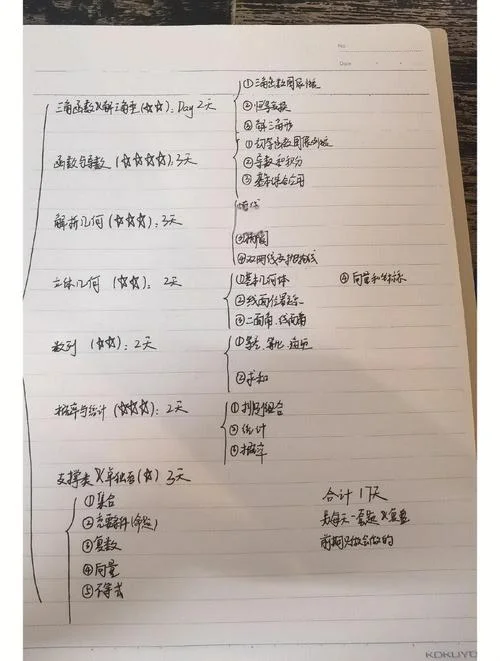 No.
Date
三角函数&解三角型(☆☆): Day 2天
①三角函数图象
②恒等变换
③解三角形
函数与导数(☆☆☆☆): 3天
①初等函数图象
②导数和积分
③基本综合应用
解析几何(☆☆☆): 3天
④双曲线与抛物线
立体几何 (☆☆): 2天
①基本几何体
②线面位置
③二面角、线面角
④向量和坐标
数列 (☆☆): 2天
①等差、等比
②求和
概率与统计(☆☆☆): 2天
①排列组合
②统计
④概率
支撑类&单独考(☆) 3天
①集合
②充要条件(命题)
③复数
④向量
⑤不等式
合计 17天
每天一套题&复盘
前期只做会做的
KOKUYO